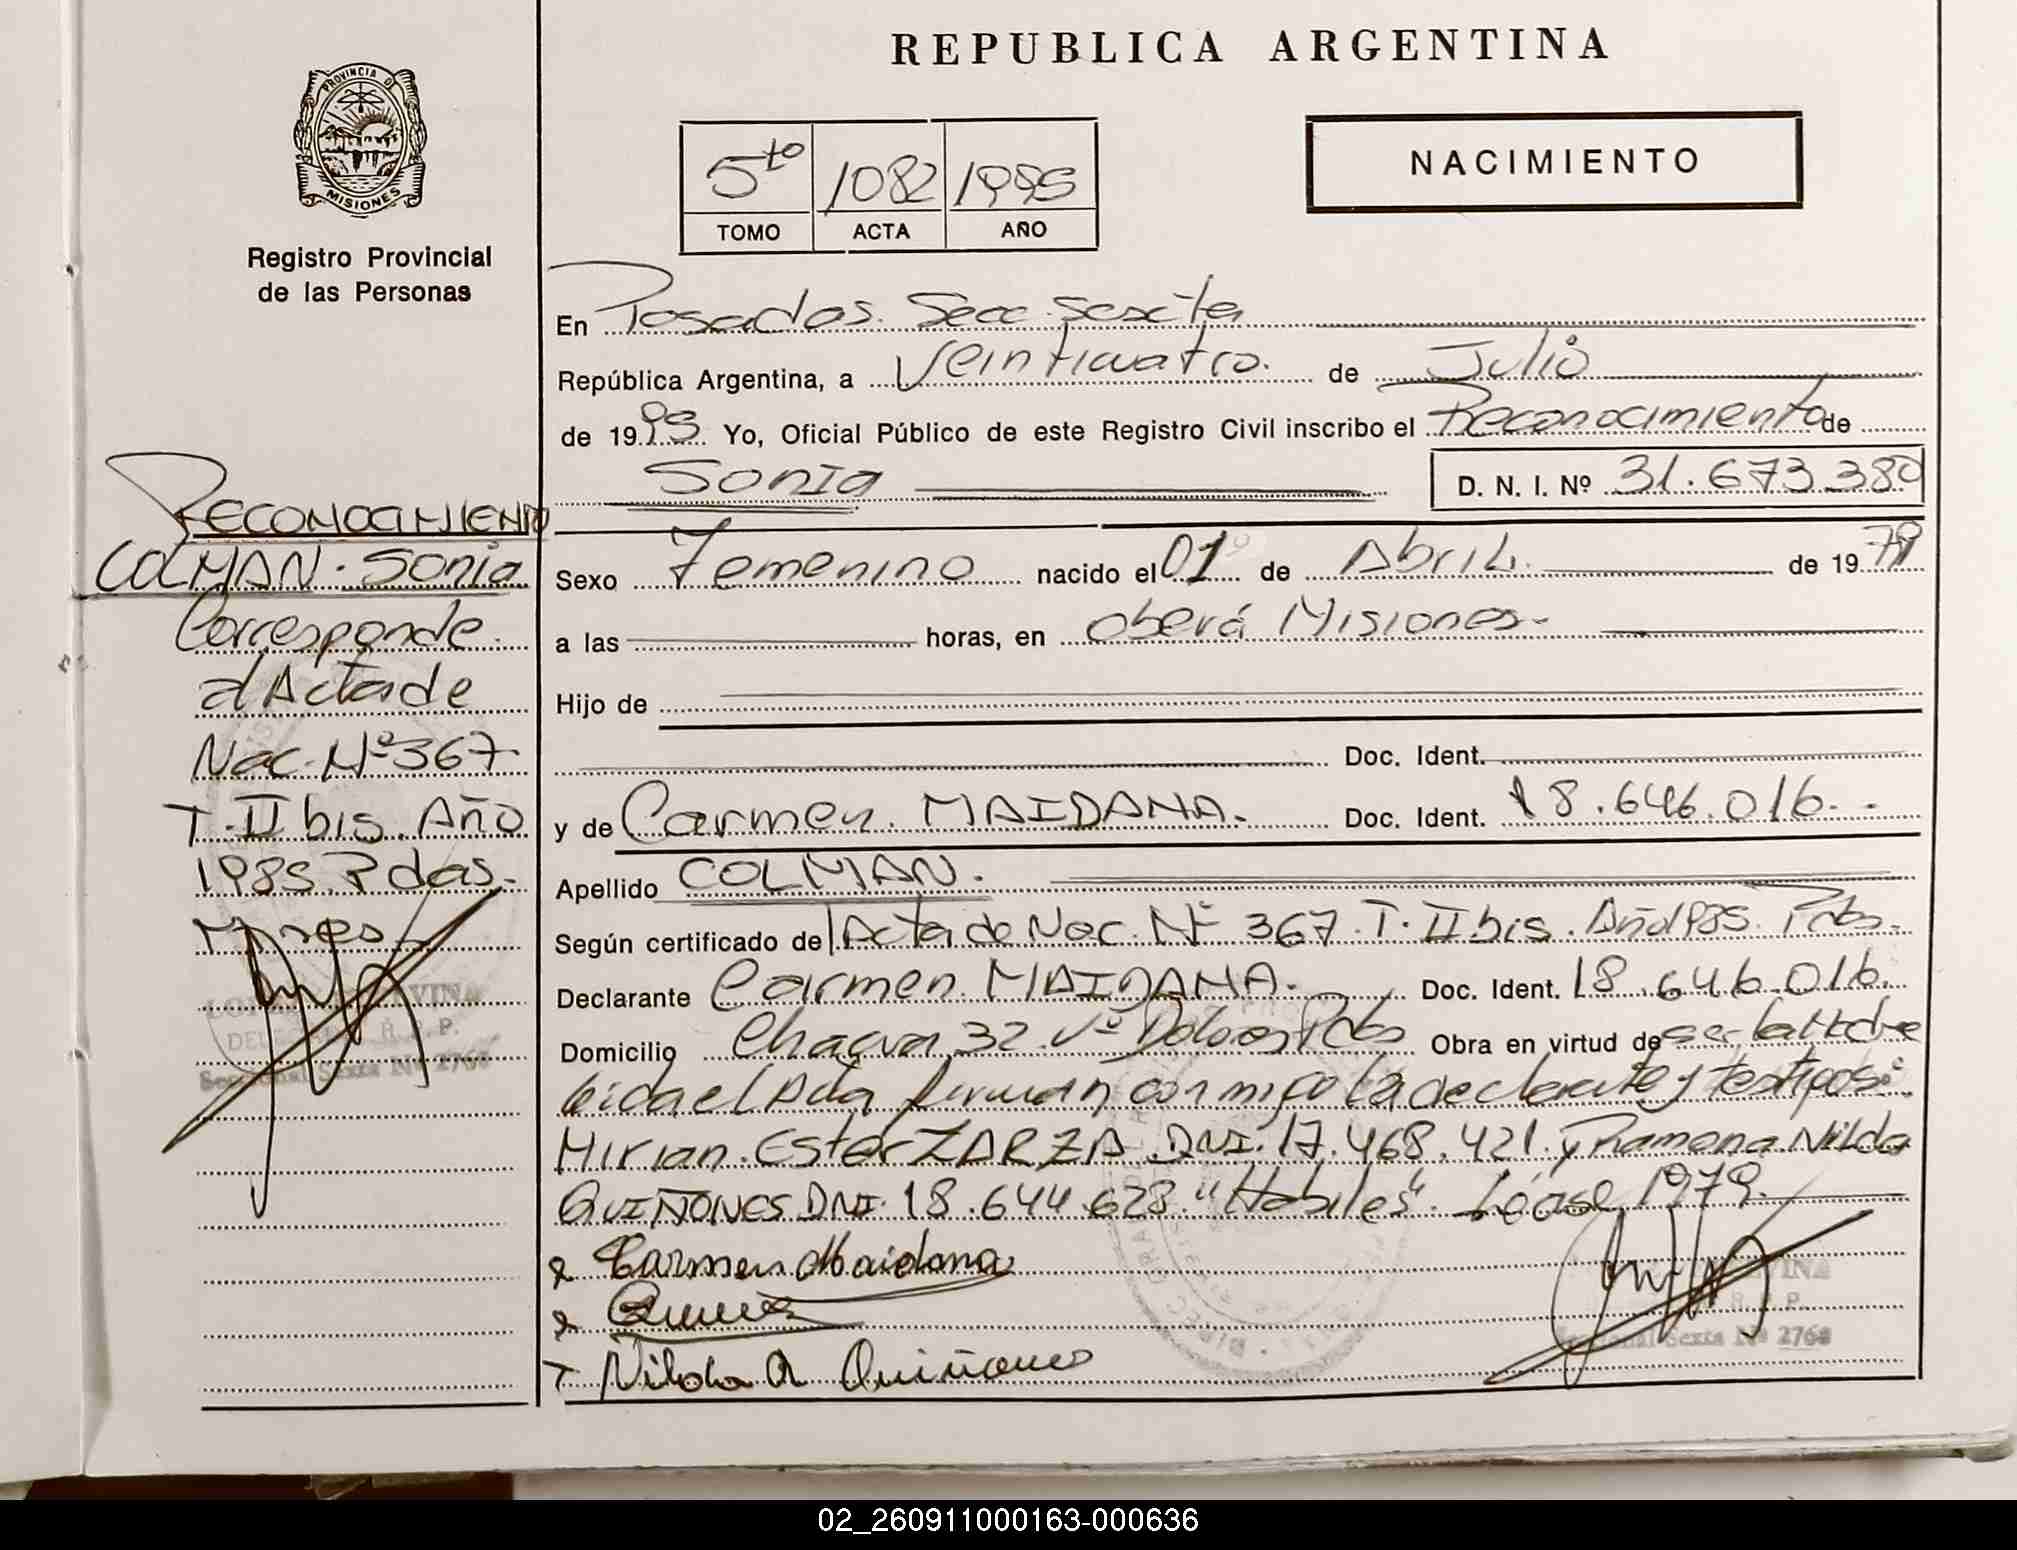 REPUBLICA ARGENTINA
PROVINCIA DE
MISIONES
Registro Provincial
de las Personas
5to 1082 1995
TOMO ACTA AÑO
NACIMIENTO
En Posadas. Secc. Sexta
República Argentina, a Veinticuatro. de Julio
de 1995 Yo, Oficial Público de este Registro Civil inscribo el Reconocimiento de
Sonia D. N. I. Nº 31.673.380
Sexo Femenino nacido el 01º de Abril. de 1979
a las horas, en Oberá Misiones.-
Hijo de
Doc. Ident.
y de Carmen MAIDANA. Doc. Ident. 18.646.016.-
Apellido COLMAN.
Según certificado de Acta de Nac. Nº 367. T. II bis. Año 1985. Pdas.
Declarante Carmen MAIDANA. Doc. Ident. 18.646.016.
Domicilio Chacra 32 Vº Dolores Pdas Obra en virtud de ser la Madre
leida el Acta firman conmigo la declarante y testigos:
Mirian Ester ZARZA DNI. 17.468.421. y Ramona Nilda
QUIÑONES DNI. 18.644.628 "Habiles". Léase 1979.
Carmen Maidana
Nilda R Quiñones
RECONOCIMIENTO
COLMAN. Sonia
Corresponde
al Acta de
Nac. Nº 367.
T. II bis. Año
1985. Pdas.
Mnes
R. P. P.
Seccional Sexta Nº 2768
Seccional Sexta Nº 2768
02_260911000163-000636